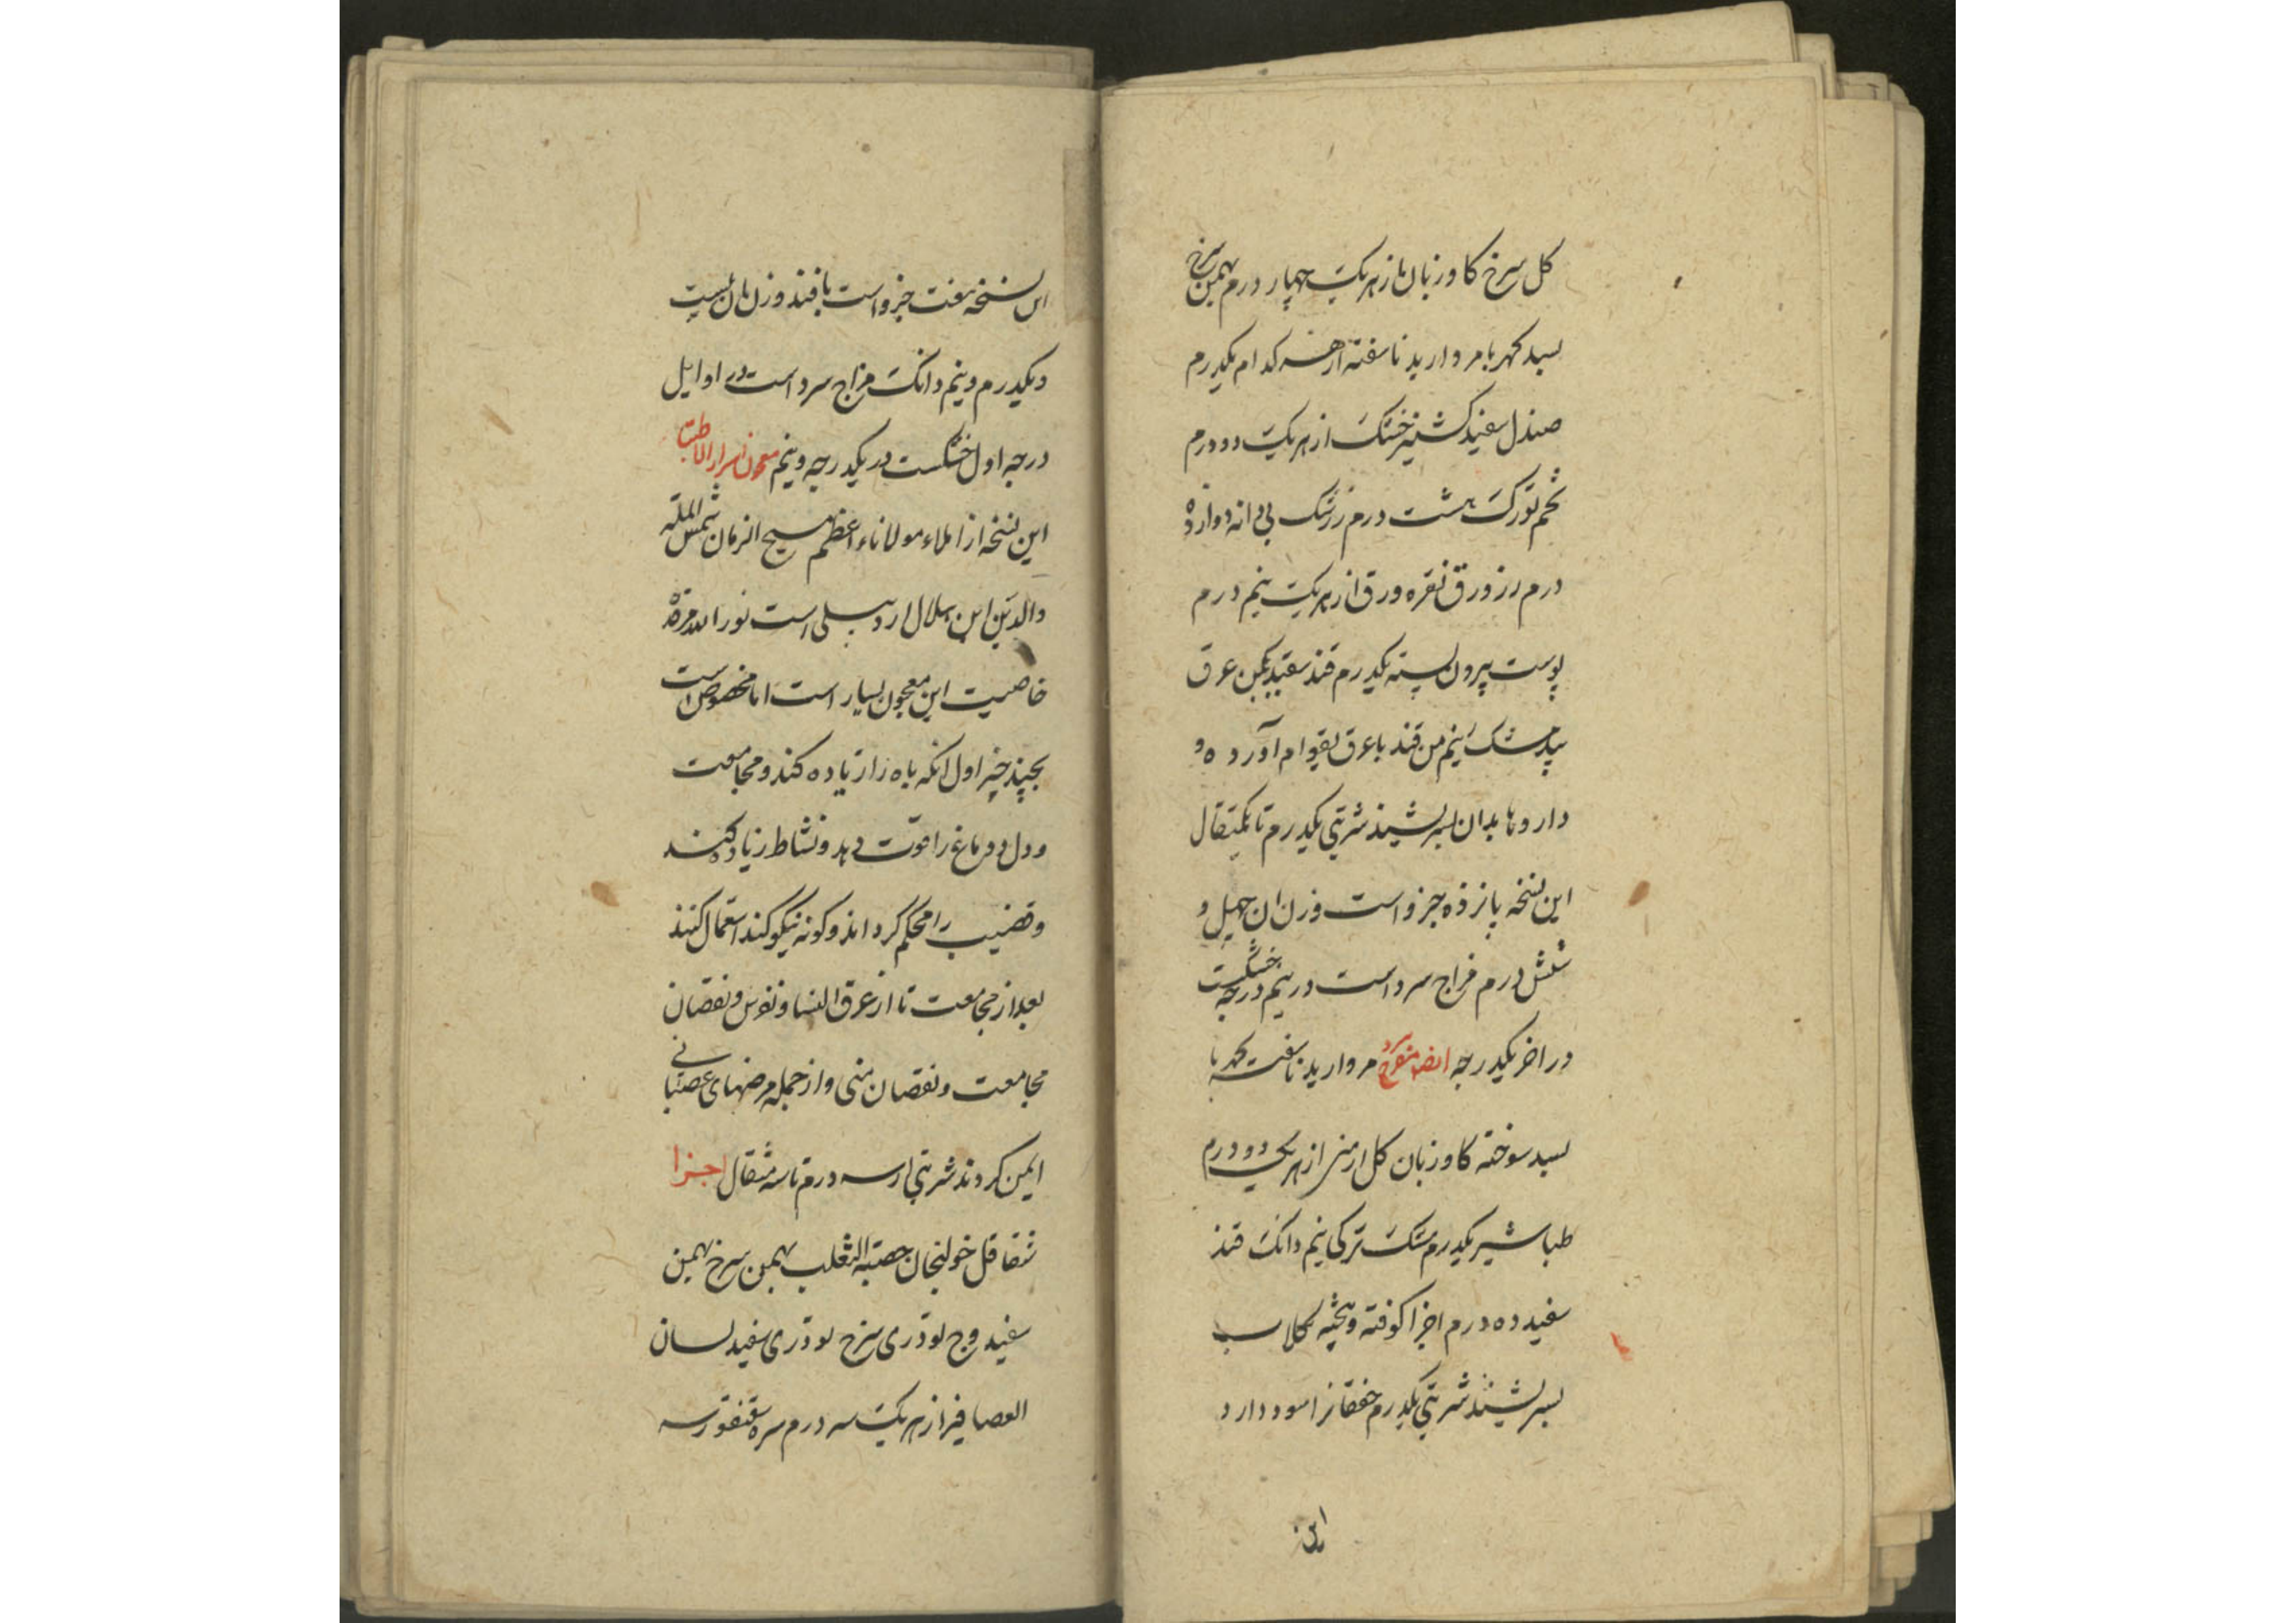 کل سرخ کاوزبان از هر یک چهار درم بهمن سرخ
بسد کهربا مروارید ناسفته از هر کدام یکدرم
صندل سفید کشنیز خشک از هر یک دو درم
تخم تورک هشت درم زرشک بی دانه دوازده
درم زر ورق نقره ورق از هر یک نیم درم
پوست بیرون پسته یکدرم قند سفید یکمن عرق
بیدمشک نیم من قند با عرق بقوام آورده و
داروها بدان بسرشند شربتی یکدرم تا یکمثقال
این نسخه پانزده جزو است وزن ان چهل و
شش درم مزاج سرد است در نیم درجه خشکست
در اخر یکدرجه ایضا مفرح سرد مروارید ناسفته کهربا
بسد سوخته کاوزبان کل ارمنی از هر یک دو درم
طباشیر یکدرم مشک ترکی نیم دانک قند
سفید ده درم اجزا کوفته و بیخته بکلاب
بسرشند شربتی یکدرم خفقانرا سود دارد
این
این نسخه هفت جزو است با قند وزن ان بیست
و یکدرم و نیم دانک مزاج سرد است در اوایل
درجه اول خشکست در یکدرجه و نیم معجون اسرار الاطبا
این نسخه از املاء مولاناء اعظم مسیح الزمان شمس المله
والدین ابن هلال اردبیلی است نور الله مرقده
خاصیت این معجون بسیار است اما مخصوص است
بچند چیز اول انکه باه را زیاده کند و مجامعت
و دل و دماغ را قوت دهد و نشاط زیاده کند
و قضیب را محکم کرداند و کونه نیکو کند استعمال کنند
بعد از مجامعت تا از عرق النسا و نقرس و نقصان
مجامعت و نقصان منی و از جمله مرضهای عصبانی
ایمن کردند شربتی از سه درم تا سه مثقال اجزا
شقاقل خولنجان خصیه الثعلب بهمن سرخ بهمن
سفید وج تودری سرخ تودری سفید لسان
العصافیر از هر یک سه درم سره سقنقور سه